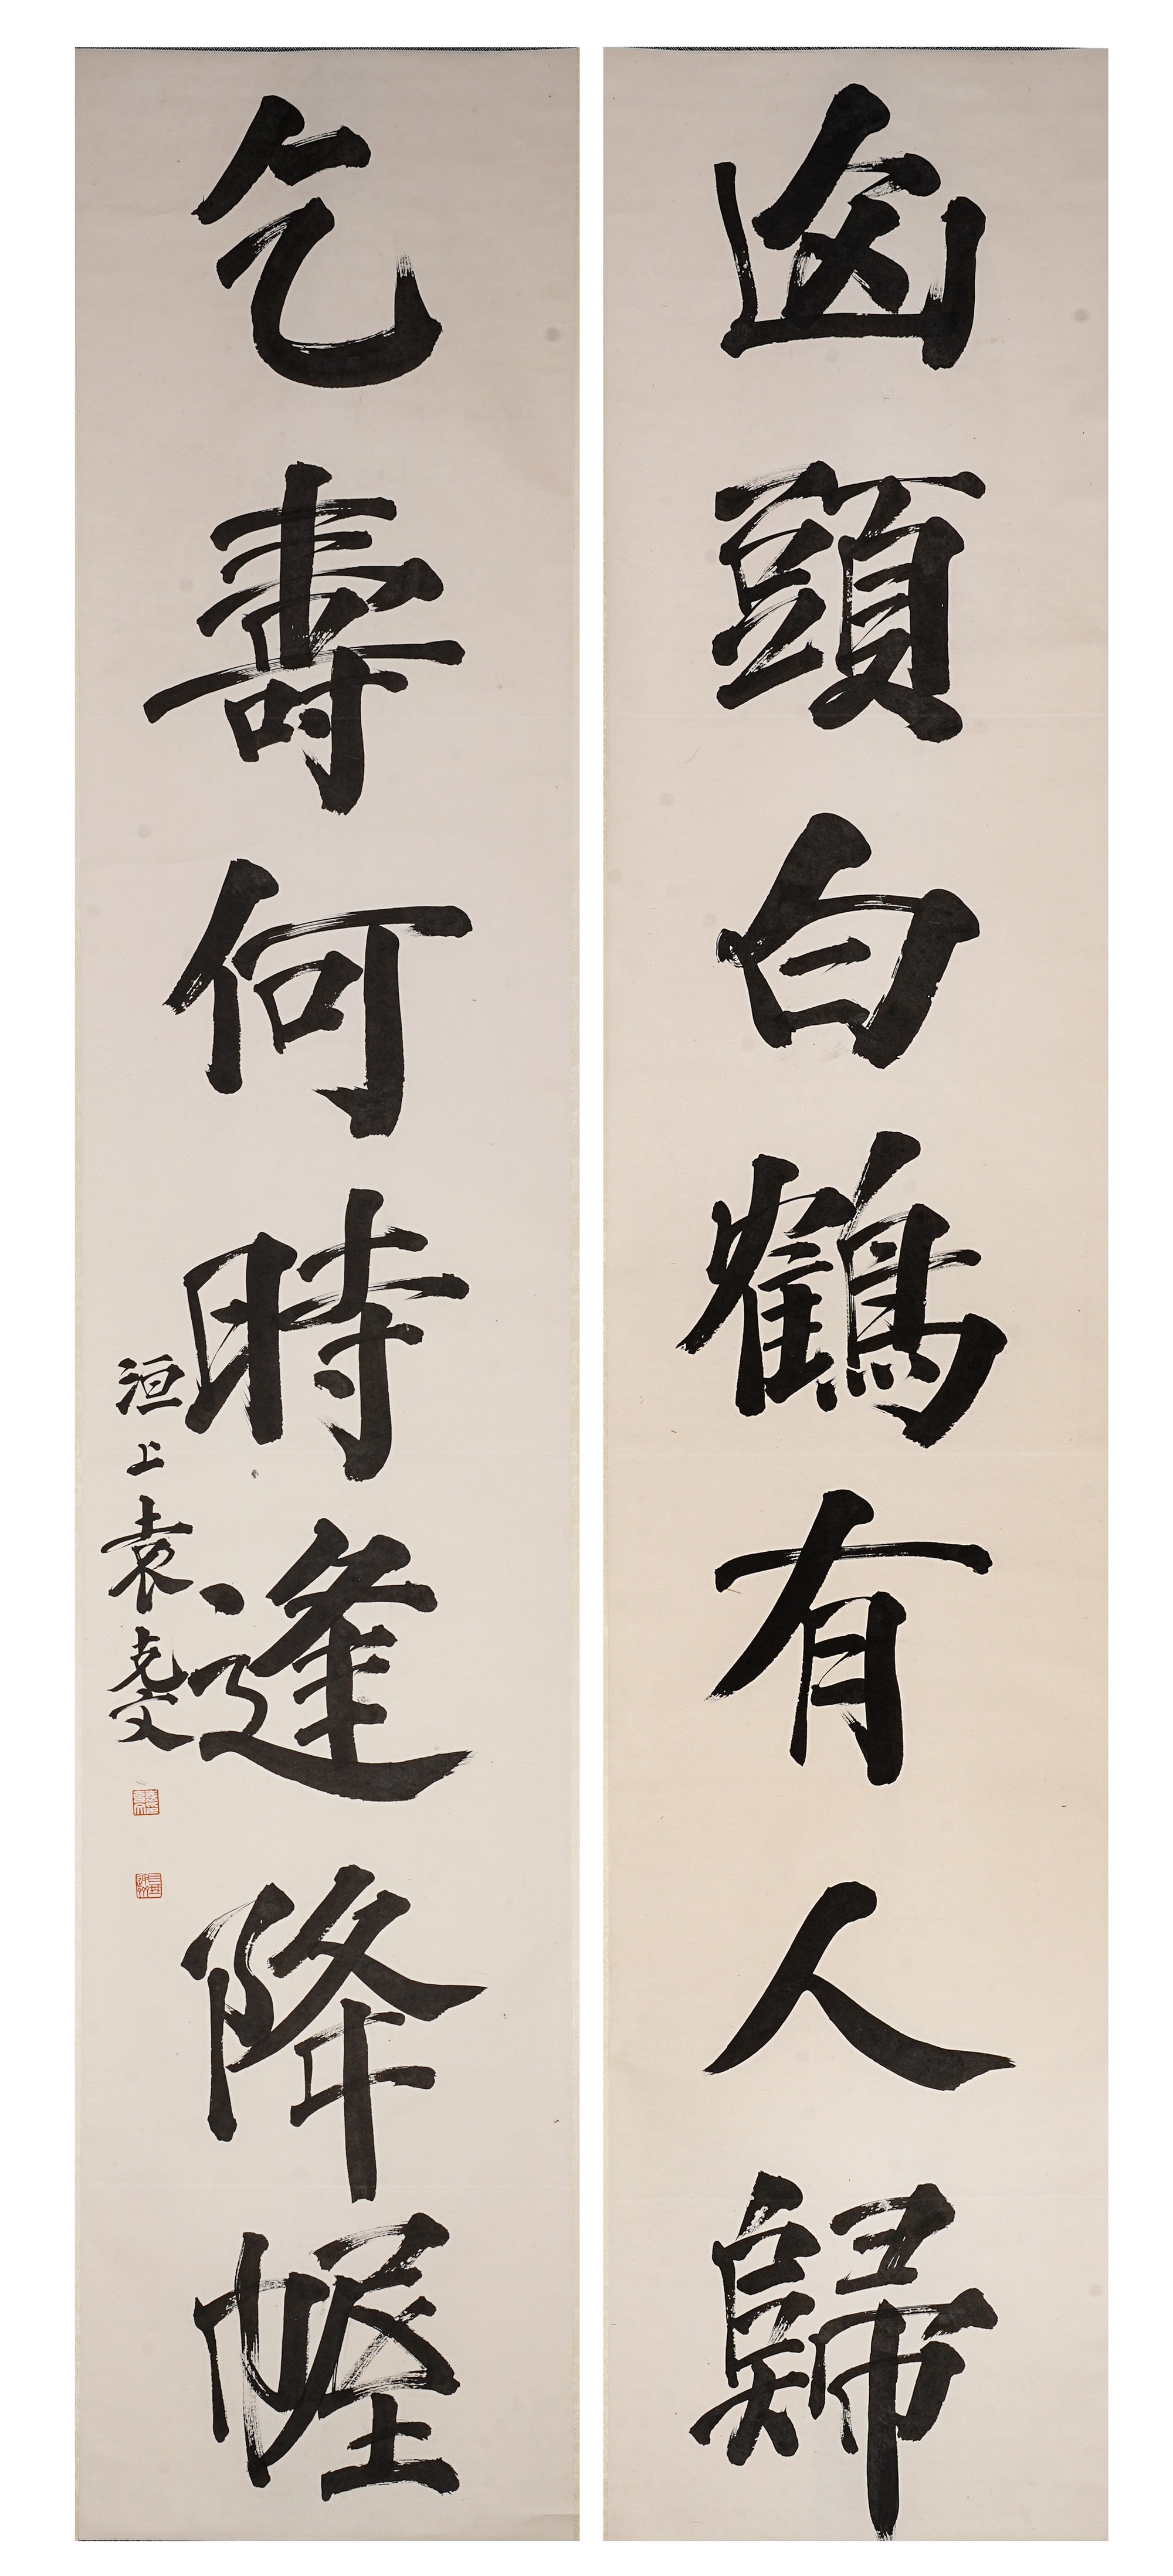 頭白鶴有人歸
乞壽何時逢降幄
洹上袁克文